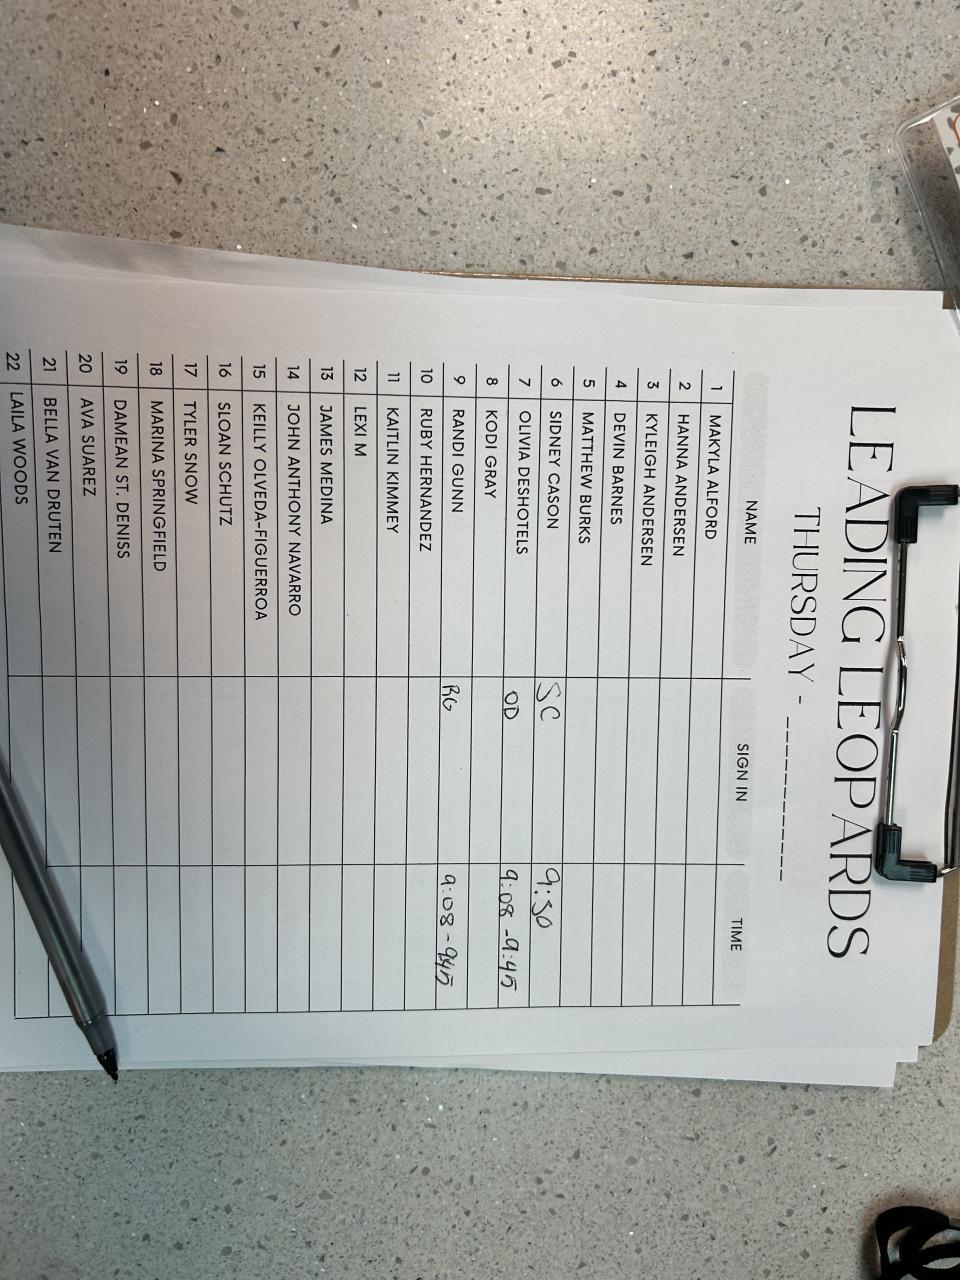 LEADING LEOPARDS
THURSDAY - ___________
NAME SIGN IN TIME
1 MAKYLA ALFORD
2 HANNA ANDERSEN
3 KYLEIGH ANDERSEN
4 DEVIN BARNES
5 MATTHEW BURKS
6 SIDNEY CASON SC 9:30
7 OLIVIA DESHOTELS OD 9:08 - 9:45
8 KODI GRAY
9 RANDI GUNN RG 9:08 - 9:45
10 RUBY HERNANDEZ
11 KAITLIN KIMMEY
12 LEXI M
13 JAMES MEDINA
14 JOHN ANTHONY NAVARRO
15 KEILLY OLVEDA-FIGUERROA
16 SLOAN SCHUTZ
17 TYLER SNOW
18 MARINA SPRINGFIELD
19 DAMEAN ST. DENISS
20 AVA SUAREZ
21 BELLA VAN DRUTEN
22 LAILA WOODS